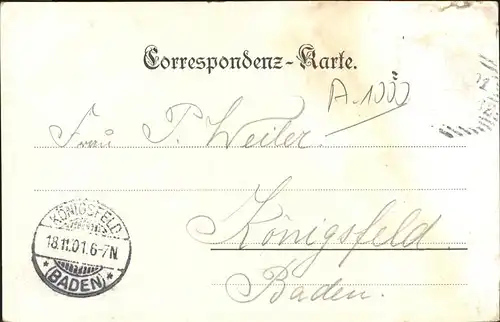 Correspondenz-Karte.
A-1000
Frau P. Weiler.
Königsfeld
Baden.
KÖNIGSFELD
18.11.01.6-7N.
* (BADEN) *